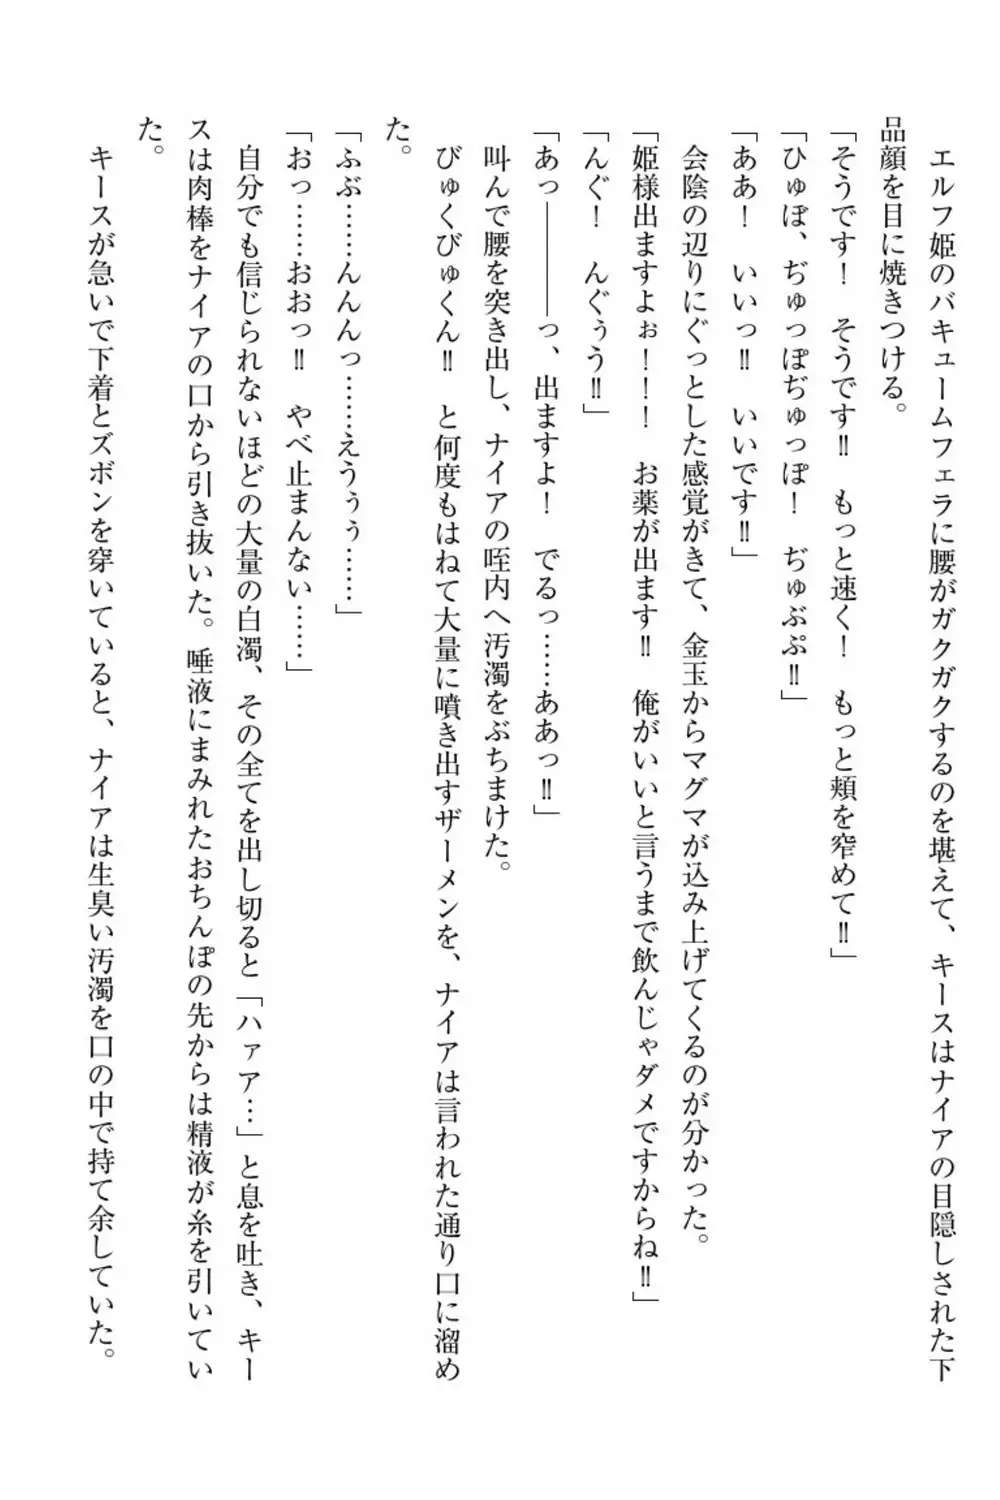 エルフ姫のバキュームフェラに腰がガクガクするのを堪えて、キースはナイアの目隠しされた下
品顔を目に焼きつける。
「そうです！　そうです‼　もっと速く！　もっと頬を窄めて‼」
「ひゅぽ、ぢゅっぽぢゅっぽ！　ぢゅぶぷ‼」
「ああ！　いいっ‼　いいです‼」
　会陰の辺りにぐっとした感覚がきて、金玉からマグマが込み上げてくるのが分かった。
「姫様出ますよぉ！！！　お薬が出ます‼　俺がいいと言うまで飲んじゃダメですからね‼」
「んぐ！　んぐぅう‼」
「あっ――――っ、出ますよ！　でるっ……ああっ‼」
　叫んで腰を突き出し、ナイアの咥内へ汚濁をぶちまけた。
　びゅくびゅくん‼　と何度もはねて大量に噴き出すザーメンを、ナイアは言われた通り口に溜め
た。
「ふぶ……んんんっ……えうぅぅ……」
「おっ……おおっ‼　やべ止まんない……」
　自分でも信じられないほどの大量の白濁、その全てを出し切ると「ハァア…」と息を吐き、キー
スは肉棒をナイアの口から引き抜いた。唾液にまみれたおちんぽの先からは精液が糸を引いてい
た。
　キースが急いで下着とズボンを穿いていると、ナイアは生臭い汚濁を口の中で持て余していた。